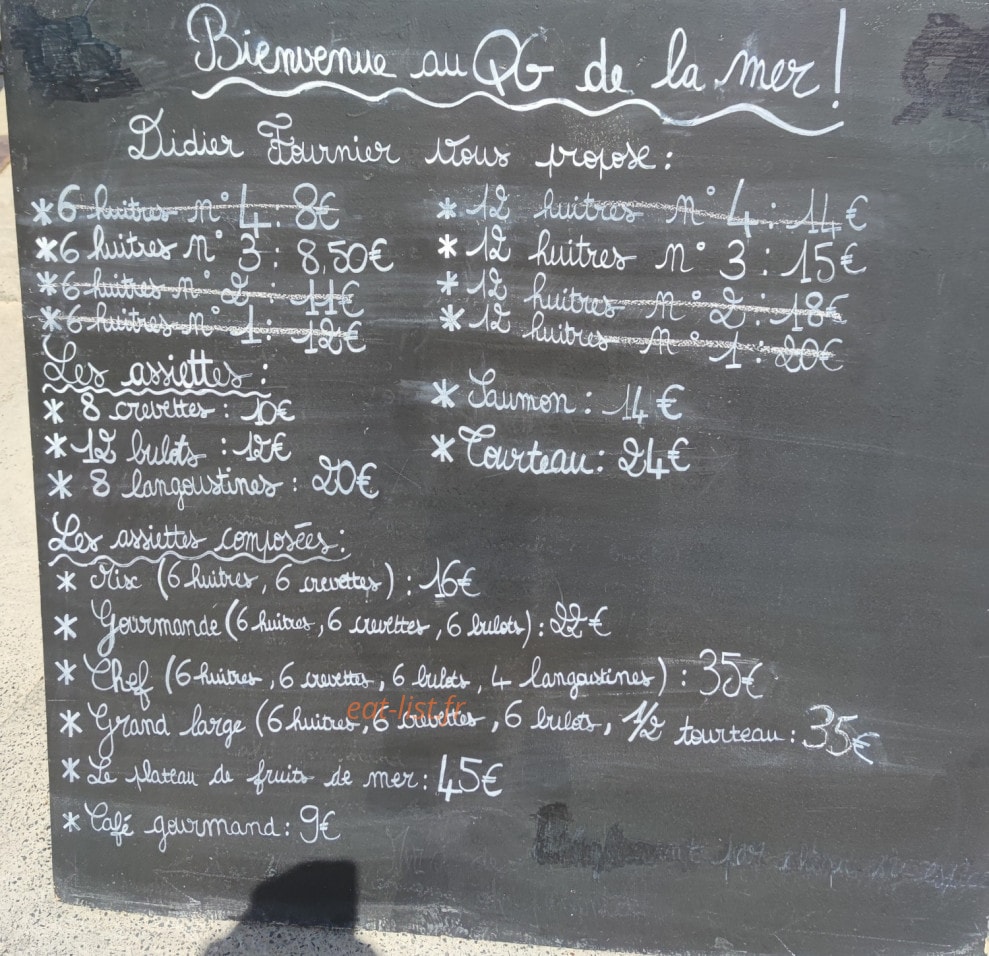 Bienvenue au QG de la mer!
Didier Fournier vous propose :
* 6 huitres n° 4 : 8€
* 6 huitres n° 3 : 8,50€
* 6 huitres n° 2 : 11€
* 6 huitres n° 1 : 12€
* 12 huitres n° 4 : 14€
* 12 huitres n° 3 : 15€
* 12 huitres n° 2 : 18€
* 12 huitres n° 1 : 20€
Les assiettes :
* 8 crevettes : 10€
* 12 bulots : 12€
* 8 langoustines : 20€
* Saumon : 14€
* Tourteau : 24€
Les assiettes composées :
* Mix (6 huitres, 6 crevettes) : 16€
* Gourmande (6 huitres, 6 crevettes, 6 bulots) : 22€
* Chef (6 huitres, 6 crevettes, 6 bulots, 4 langoustines) : 35€
* Grand large (6 huitres, 6 crevettes, 6 bulots, 1/2 tourteau : 35€
eat-list.fr
* Le plateau de fruits de mer : 45€
* Café gourmand : 9€